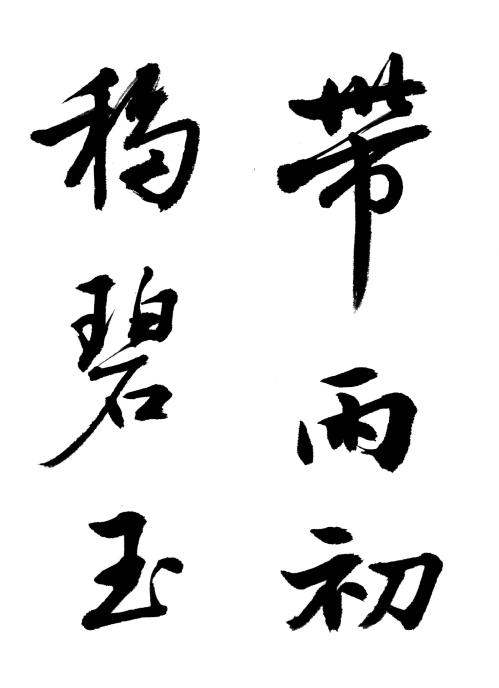 带雨初
移碧玉